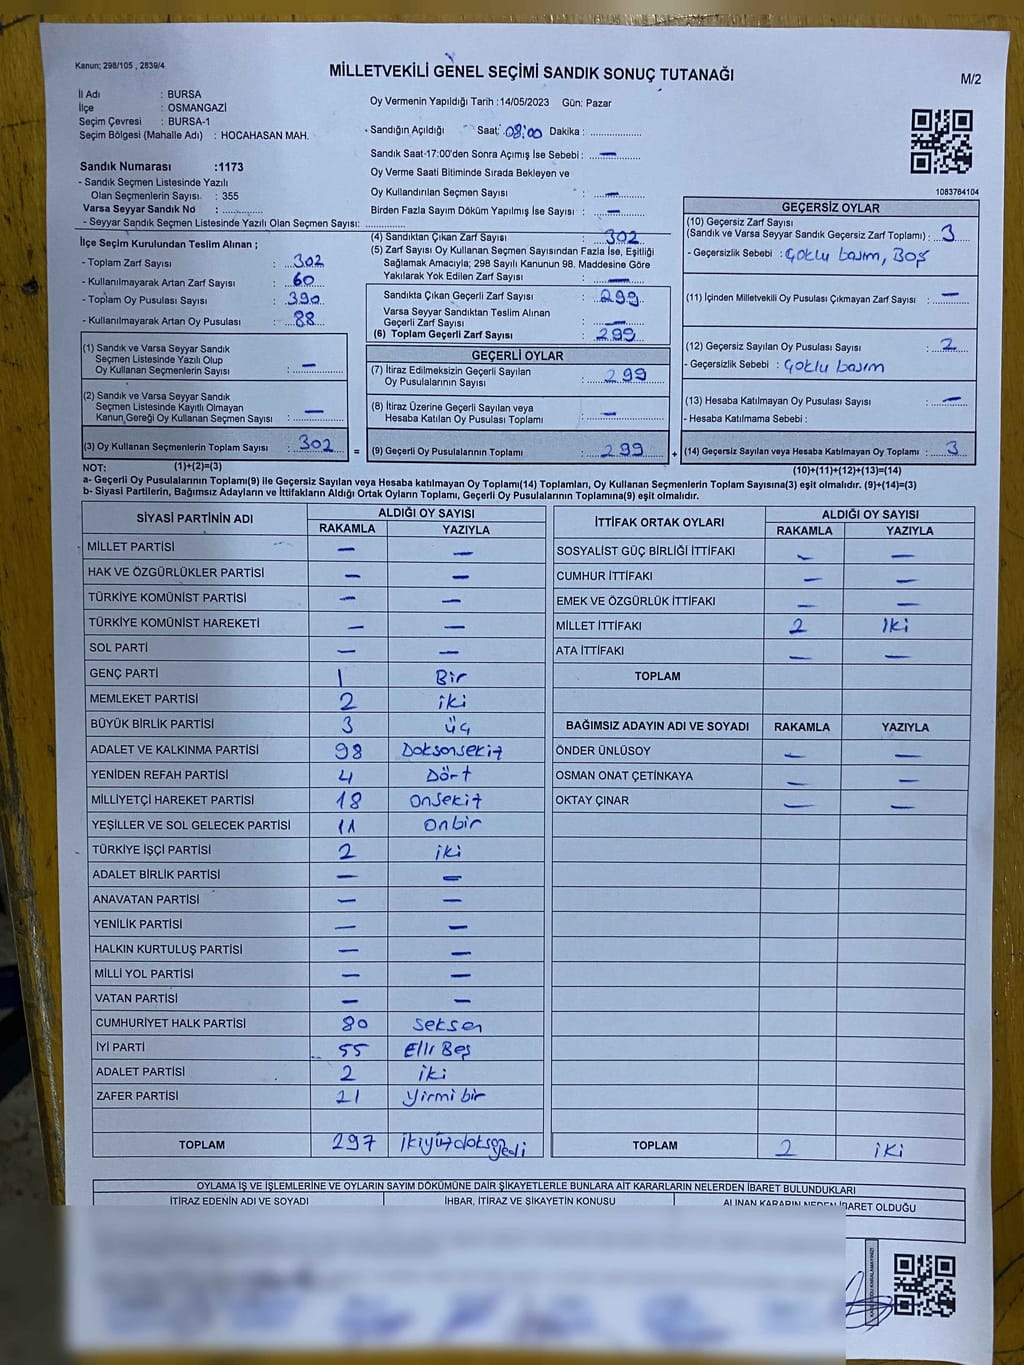 Kanun; 298/105 , 2839/4
MİLLETVEKİLİ GENEL SEÇİMİ SANDIK SONUÇ TUTANAĞI
M/2
İl Adı : BURSA
İlçe : OSMANGAZİ
Seçim Çevresi : BURSA-1
Seçim Bölgesi (Mahalle Adı) : HOCAHASAN MAH.
Sandık Numarası :1173
- Sandık Seçmen Listesinde Yazılı
Olan Seçmenlerin Sayısı : 355
Varsa Seyyar Sandık No :
- Seyyar Sandık Seçmen Listesinde Yazılı Olan Seçmen Sayısı:
Oy Vermenin Yapıldığı Tarih :14/05/2023 Gün: Pazar
- Sandığın Açıldığı Saat: 08:00 Dakika :
Sandık Saat-17:00'den Sonra Açımış İse Sebebi : —
Oy Verme Saati Bitiminde Sırada Bekleyen ve
Oy Kullandırılan Seçmen Sayısı : —
Birden Fazla Sayım Döküm Yapılmış İse Sayısı : —
1083764104
İlçe Seçim Kurulundan Teslim Alınan ;
- Toplam Zarf Sayısı : 302
- Kullanılmayarak Artan Zarf Sayısı : 60
- Toplam Oy Pusulası Sayısı : 390
- Kullanılmayarak Artan Oy Pusulası : 88
(1) Sandık ve Varsa Seyyar Sandık
Seçmen Listesinde Yazılı Olup
Oy Kullanan Seçmenlerin Sayısı : —
(2) Sandık ve Varsa Seyyar Sandık
Seçmen Listesinde Kayıtlı Olmayan
Kanun Gereği Oy Kullanan Seçmen Sayısı : —
(3) Oy Kullanan Seçmenlerin Toplam Sayısı : 302
(4) Sandıktan Çıkan Zarf Sayısı : 302
(5) Zarf Sayısı Oy Kullanan Seçmen Sayısından Fazla İse, Eşitliği
Sağlamak Amacıyla; 298 Sayılı Kanunun 98. Maddesine Göre
Yakılarak Yok Edilen Zarf Sayısı : —
Sandıkta Çıkan Geçerli Zarf Sayısı : 299
Varsa Seyyar Sandıktan Teslim Alınan
Geçerli Zarf Sayısı : —
(6) Toplam Geçerli Zarf Sayısı : 299
GEÇERLİ OYLAR
(7) İtiraz Edilmeksizin Geçerli Sayılan
Oy Pusulalarının Sayısı : 299
(8) İtiraz Üzerine Geçerli Sayılan veya
Hesaba Katılan Oy Pusulası Toplamı : —
= (9) Geçerli Oy Pusulalarının Toplamı : 299 +
GEÇERSİZ OYLAR
(10) Geçersiz Zarf Sayısı
(Sandık ve Varsa Seyyar Sandık Geçersiz Zarf Toplamı) : 3
- Geçersizlik Sebebi : Çoklu basım, Boş
(11) İçinden Milletvekili Oy Pusulası Çıkmayan Zarf Sayısı : —
(12) Geçersiz Sayılan Oy Pusulası Sayısı : 2
- Geçersizlik Sebebi : Çoklu basım
(13) Hesaba Katılmayan Oy Pusulası Sayısı : —
- Hesaba Katılmama Sebebi :
(14) Geçersiz Sayılan veya Hesaba Katılmayan Oy Toplamı : 3
NOT: (1)+(2)=(3)
(10)+(11)+(12)+(13)=(14)
a- Geçerli Oy Pusulalarının Toplamı(9) ile Geçersiz Sayılan veya Hesaba katılmayan Oy Toplamı(14) Toplamları, Oy Kullanan Seçmenlerin Toplam Sayısına(3) eşit olmalıdır. (9)+(14)=(3)
b- Siyasi Partilerin, Bağımsız Adayların ve İttifakların Aldığı Ortak Oyların Toplamı, Geçerli Oy Pusulalarının Toplamına(9) eşit olmalıdır.
SİYASİ PARTİNİN ADI ALDIĞI OY SAYISI
RAKAMLA YAZIYLA
MİLLET PARTİSİ — —
HAK VE ÖZGÜRLÜKLER PARTİSİ — —
TÜRKİYE KOMÜNİST PARTİSİ — —
TÜRKİYE KOMÜNİST HAREKETİ — —
SOL PARTİ — —
GENÇ PARTİ 1 Bir
MEMLEKET PARTİSİ 2 iki
BÜYÜK BİRLİK PARTİSİ 3 üç
ADALET VE KALKINMA PARTİSİ 98 Doksansekiz
YENİDEN REFAH PARTİSİ 4 Dört
MİLLİYETÇİ HAREKET PARTİSİ 18 onsekiz
YEŞİLLER VE SOL GELECEK PARTİSİ 11 onbir
TÜRKİYE İŞÇİ PARTİSİ 2 iki
ADALET BİRLİK PARTİSİ — —
ANAVATAN PARTİSİ — —
YENİLİK PARTİSİ — —
HALKIN KURTULUŞ PARTİSİ — —
MİLLİ YOL PARTİSİ — —
VATAN PARTİSİ — —
CUMHURİYET HALK PARTİSİ 80 seksen
İYİ PARTİ 55 Elli Beş
ADALET PARTİSİ 2 iki
ZAFER PARTİSİ 21 yirmi bir
TOPLAM 297 ikiyüzdoksanyedi
İTTİFAK ORTAK OYLARI ALDIĞI OY SAYISI
RAKAMLA YAZIYLA
SOSYALİST GÜÇ BİRLİĞİ İTTİFAKI — —
CUMHUR İTTİFAKI — —
EMEK VE ÖZGÜRLÜK İTTİFAKI — —
MİLLET İTTİFAKI 2 iki
ATA İTTİFAKI — —
TOPLAM
BAĞIMSIZ ADAYIN ADI VE SOYADI RAKAMLA YAZIYLA
ÖNDER ÜNLÜSOY — —
OSMAN ONAT ÇETİNKAYA — —
OKTAY ÇINAR — —
TOPLAM 2 iki
OYLAMA İŞ VE İŞLEMLERİNE VE OYLARIN SAYIM DÖKÜMÜNE DAİR ŞİKAYETLERLE BUNLARA AİT KARARLARIN NELERDEN İBARET BULUNDUKLARI
İTİRAZ EDENİN ADI VE SOYADI İHBAR, İTİRAZ VE ŞİKAYETİN KONUSU ALINAN KARARIN NEDEN İBARET OLDUĞU